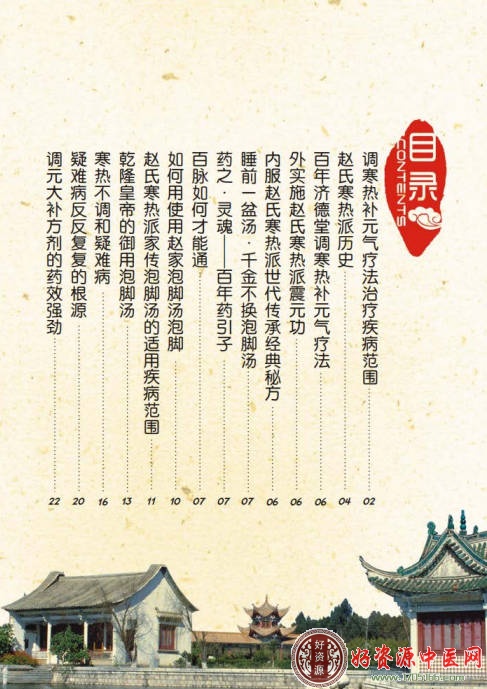 目录
CONTENTS
调寒热补元气疗法治疗疾病范围 02
赵氏寒热派历史 04
百年济德堂调寒热补元气疗法 06
外实施赵氏寒热派震元功 06
内服赵氏寒热派世代传承经典秘方 06
睡前一盆汤·千金不换泡脚汤 07
药之·灵魂——百年药引子 07
百脉如何才能通 07
如何用使用赵家泡脚汤泡脚 10
赵氏寒热派家传泡脚汤的适用疾病范围 11
乾隆皇帝的御用泡脚汤 13
寒热不调和疑难病 16
疑难病反反复复的根源 20
调元大补方剂的药效强劲 22
好资源
好资源中医网